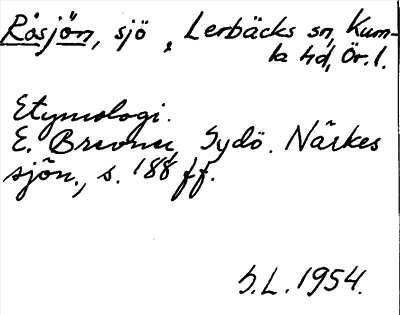 Rösjön, sjö, Lerbäcks sn, Kum-
la hd, Ör. l.
Etymologi.
E. Brevner, Sydö. Närkes
sjön., s. 188 ff.
S.L. 1954.